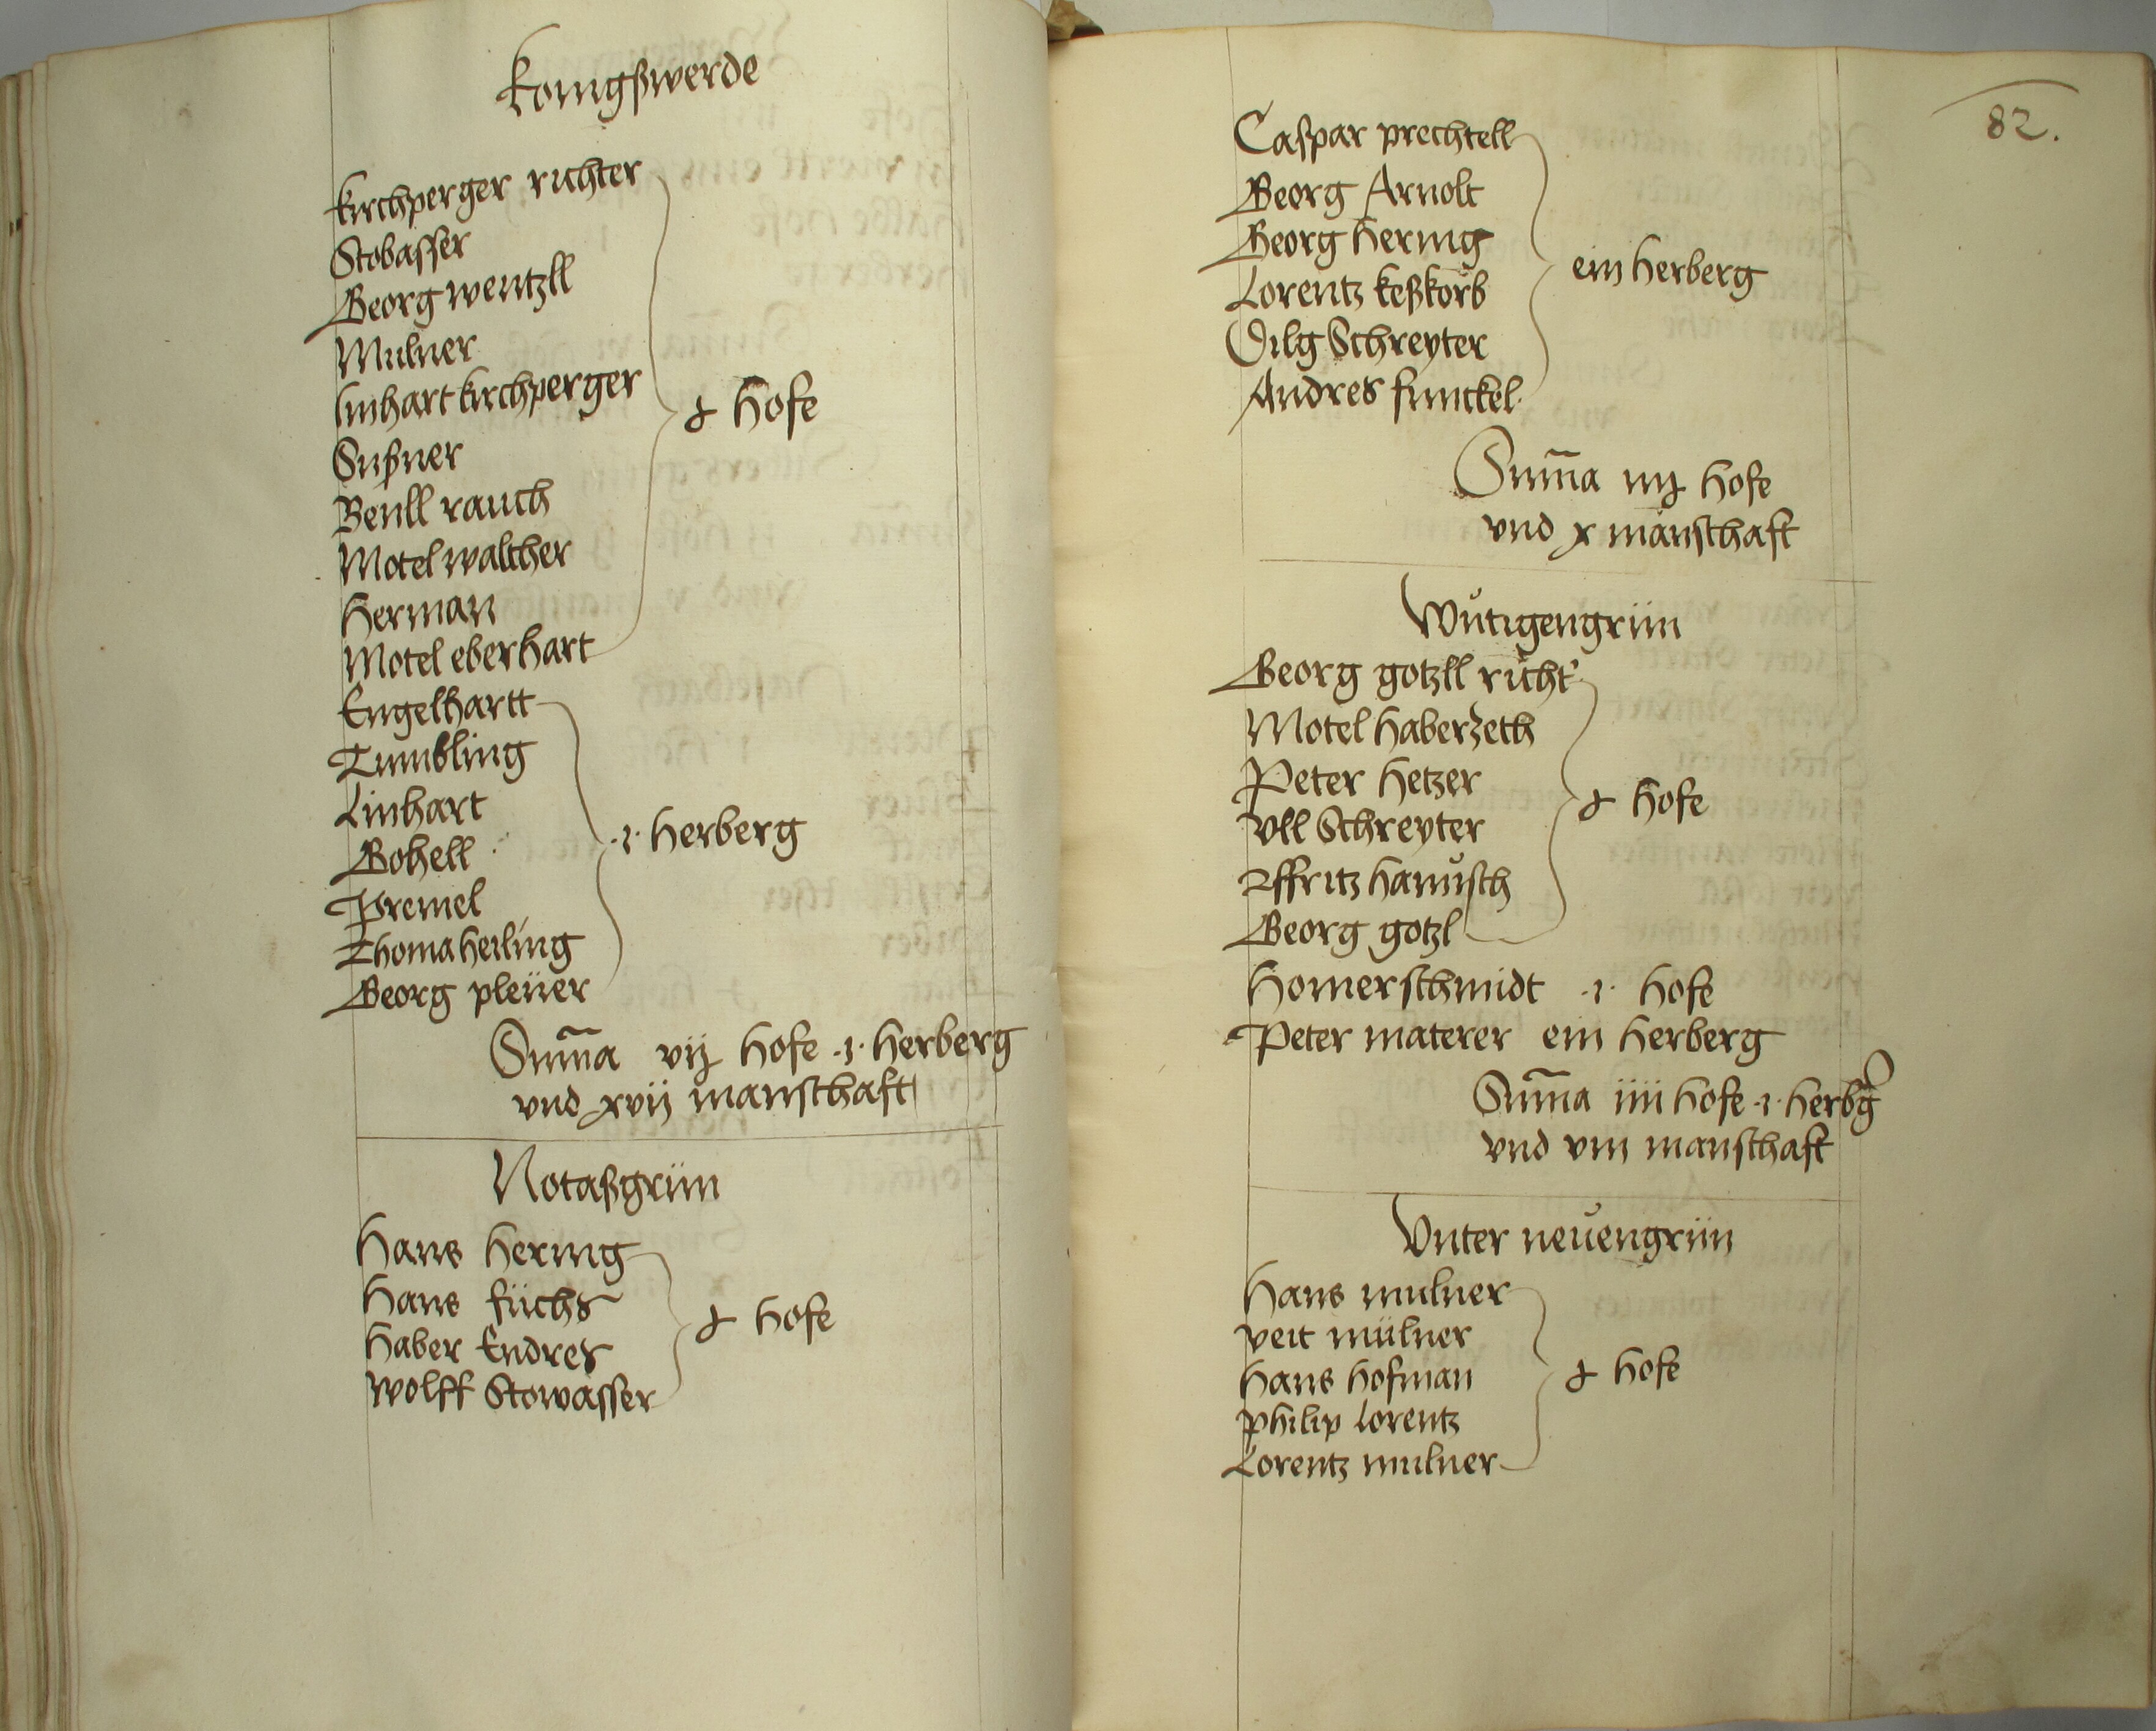 Konigßwerde
Kirchperger richter
Stobasser
Georg wentzll
Mulner
linhart kirchperger
Sußner
Beull rauch
Motel walther
Herman
Motel eberhart
Hofe
Engelhartt
Tumbling
Linhart
Gohell
Premel
Thoma heiling
Georg pleüer
.1. Herberg
Summa vij Hofe .1. Herberg
vnd xvij manschaft
Notaßgrün
Hans Hering
Hans füchs
Haber Endres
Wolff Stowasser
Hofe
82.
Caspar prechtell
Georg Arnolt
Georg Hering
Lorentz keßkorb
Gilg Schreyter
Andres funckel
ein Herberg
Summa Hofe
vnd x manschaft
Wutigengrün
Georg gotzll richt
Motel Haberzeth
Peter Hetzer
Vll Schreyter
ffritz Hanusch
Georg gotzl
Hofe
Homerschmidt .1. Hofe
Peter materer ein Herberg
Summa iiii Hofe .1. Herbg
vnd viii manschaft
Vnter neuengrün
Hans mulner
veit mülner
Hans Hofman
philip Lorentz
Lorentz mulner
Hofe